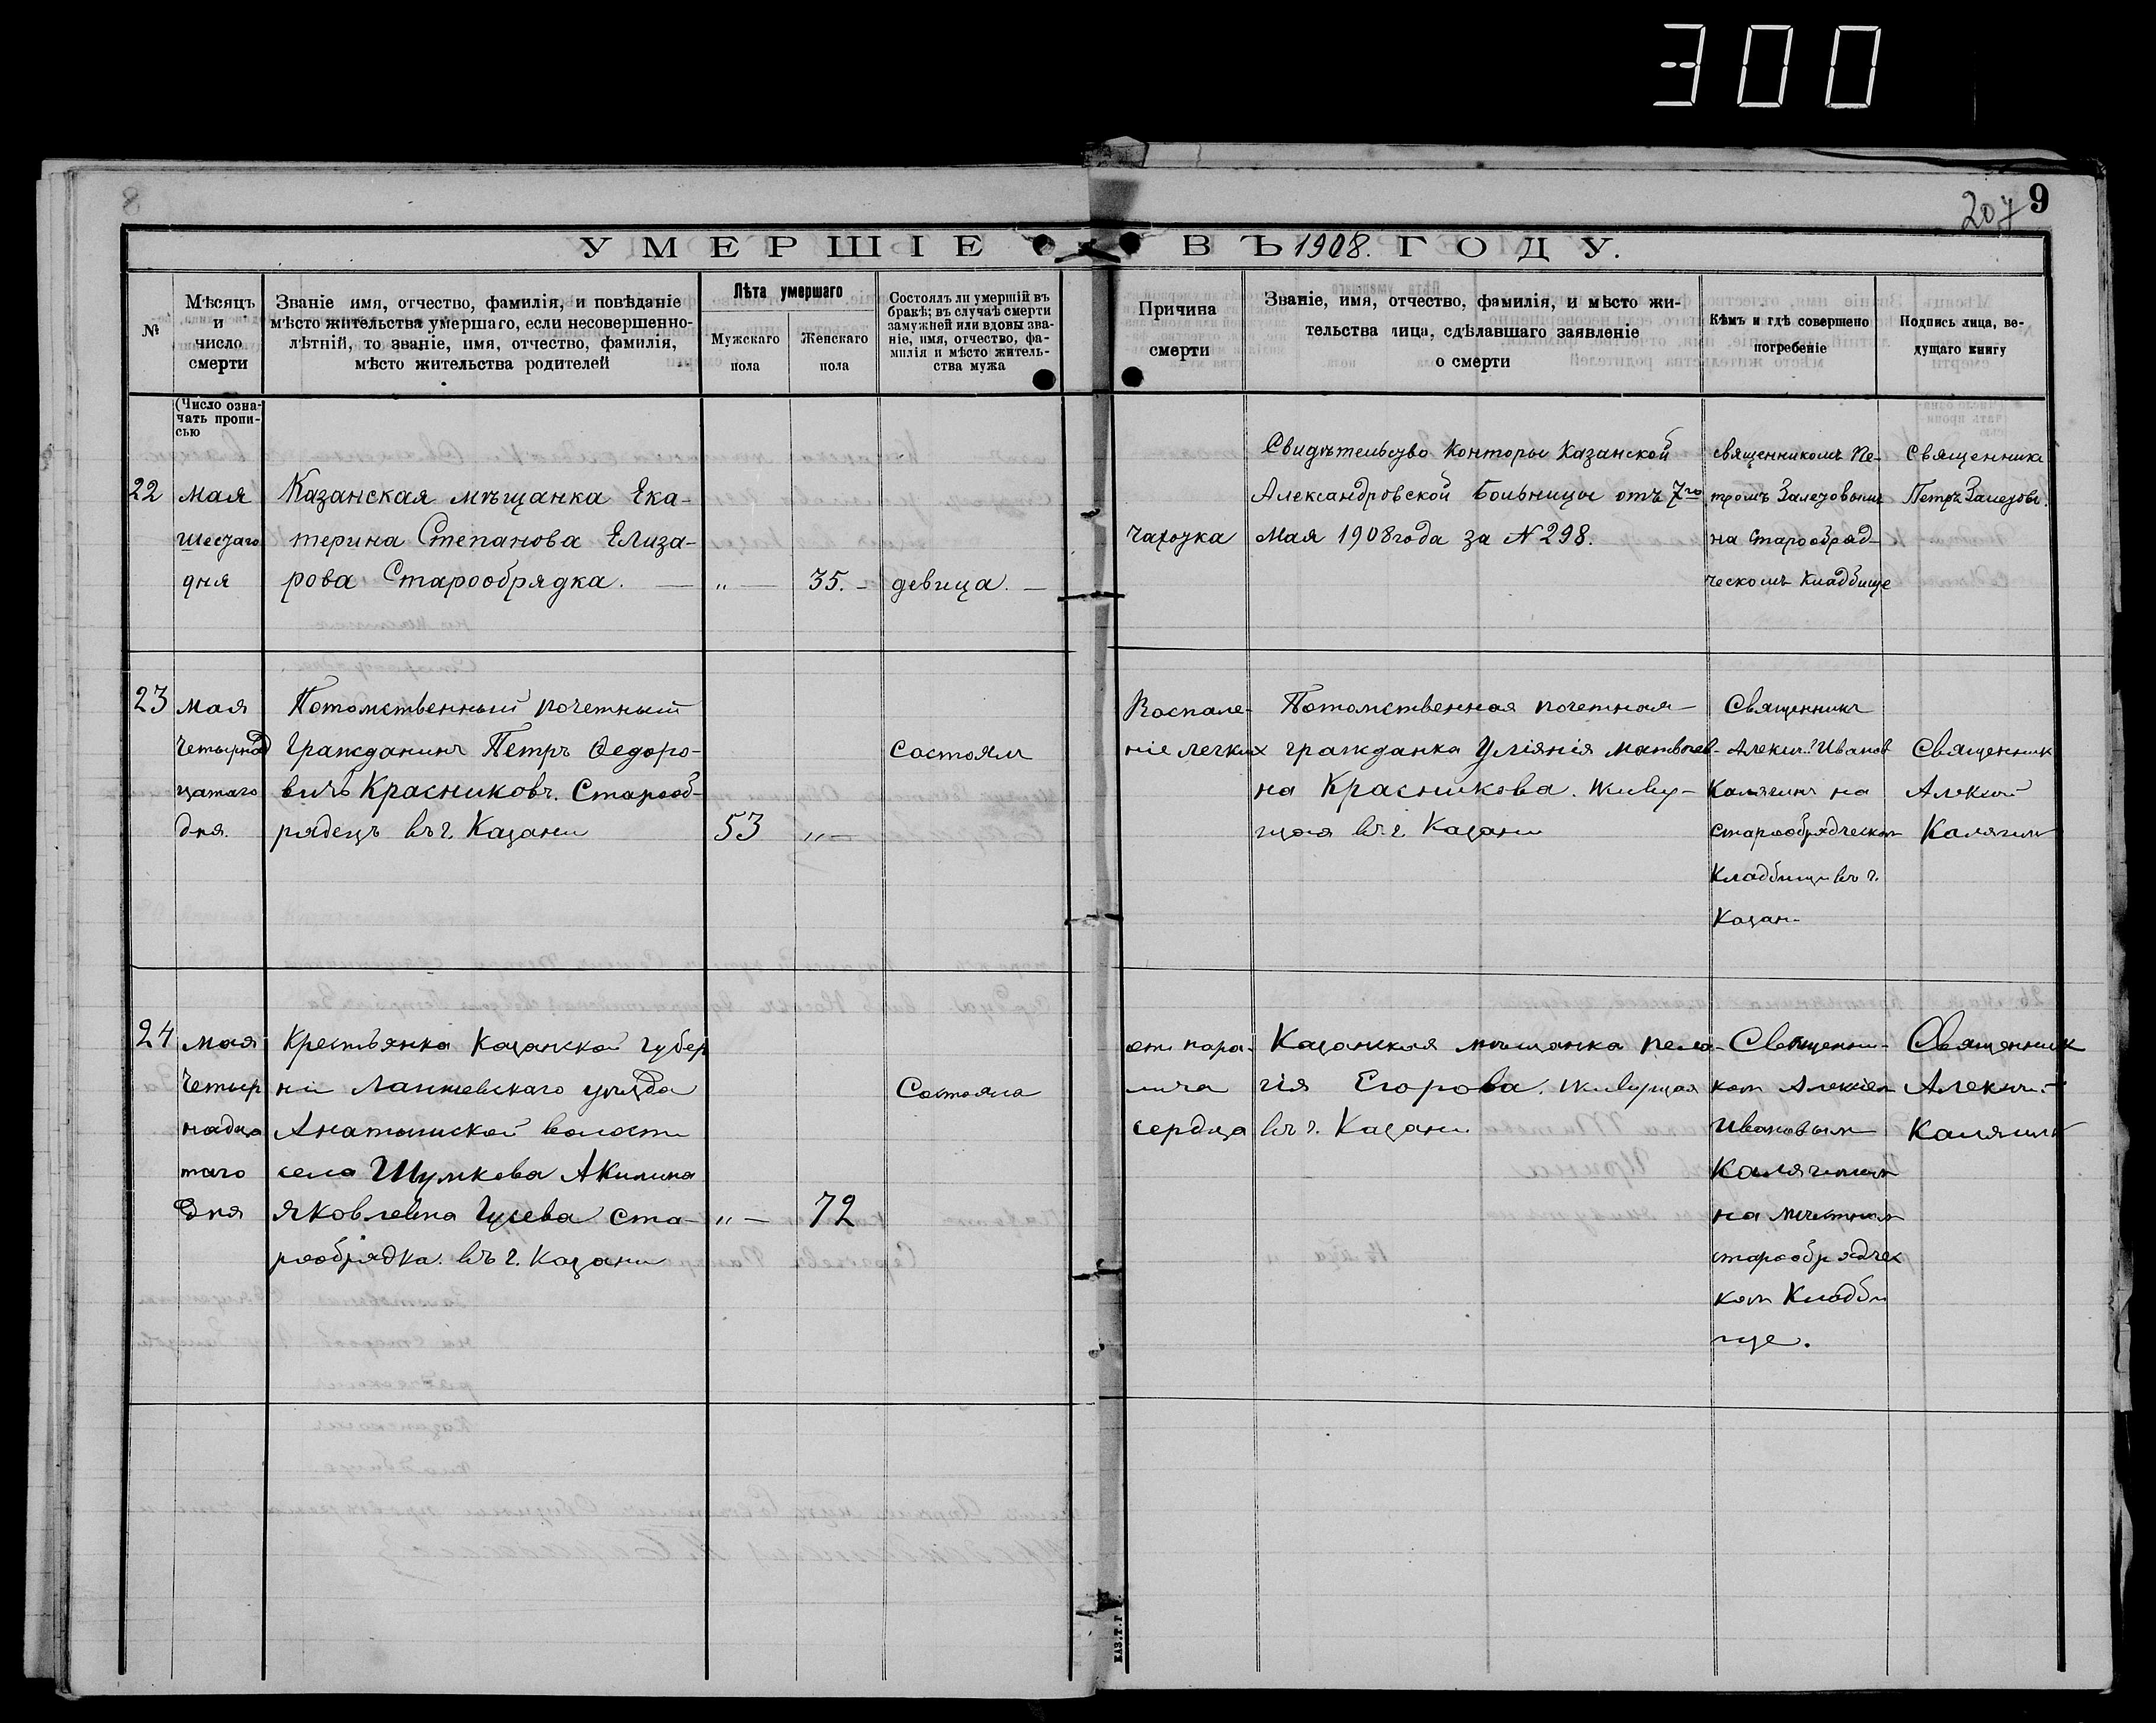 300
207 9
УМЕРШІЕ ВЪ 1908. ГОДУ.
№
Мѣсяцъ
и
число
смерти
Званіе имя, отчество, фамилія, и повѣданіе
мѣсто жительства умершаго, если несовершенно-
лѣтній, то званіе, имя, отчество, фамилія,
мѣсто жительства родителей
Лѣта умершаго
Мужскаго
пола
Женскаго
пола
Состоялъ ли умершій въ
бракѣ; въ случаѣ смерти
замужней или вдовы зва-
ніе, имя, отчество, фа-
милія и мѣсто житель-
ства мужа
Причина
смерти
Званіе, имя, отчество, фамилія, и мѣсто жи-
тельства лица, сдѣлавшаго заявленіе
о смерти
Кѣмъ и гдѣ совершено
погребеніе
Подпись лица, ве-
дущаго книгу
(Число озна-
чать пропи-
сью
22
Мая
шестаго
дня
Казанская мѣщанка Ека-
терина Степанова Елиза-
рова Старообрядка. —
„ —
35. –
девица. –
Чахотка
Свидѣтельство Конторы Казанской
Александровской Больницы отъ 7го
Мая 1908 года за N 298.
священникомъ Пе-
тромъ Залетовымъ
на Старообряд-
ческомъ Кладбище
Священникъ
Петръ Залетовъ.
23
мая
Четырнад
цатаго
дня.
Потомственный почетный
Гражданинъ Петръ Ѳедоро-
вичъ Красниковъ. Старооб-
рядецъ въ г. Казани
53
„ —
Состоялъ
Воспале-
ніе легких
Потомственная почетная
гражданка Уліянія Матвѣев-
на Красникова. Живу-
щая въ г. Казани
Священникъ
Алексий Иванов
Калягинъ на
старообрядческом
Кладбищи въ г.
Казан-
Священник
Алексий
Калягинъ
24
мая
Четыр
надца
таго
Дня
Крестьянка Казанской губер
ніи Лаишевскаго уѣзда
волости
села Шумкова Акилина
Яковлевна Гусева ста-
рообрядка. въ г. Казани
„ —
72
Состояла
от пара-
лича
сердца
Казанская мѣщанка Пела-
гія Егорова. Живущая
въ г. Казани
Священни-
ком Алексіем
Ивановым
Калягиным
на местном
старообрядчес
ком Кладби
ще.
Священник
Алексий
Калягинъ
КАЗ.Т.Г